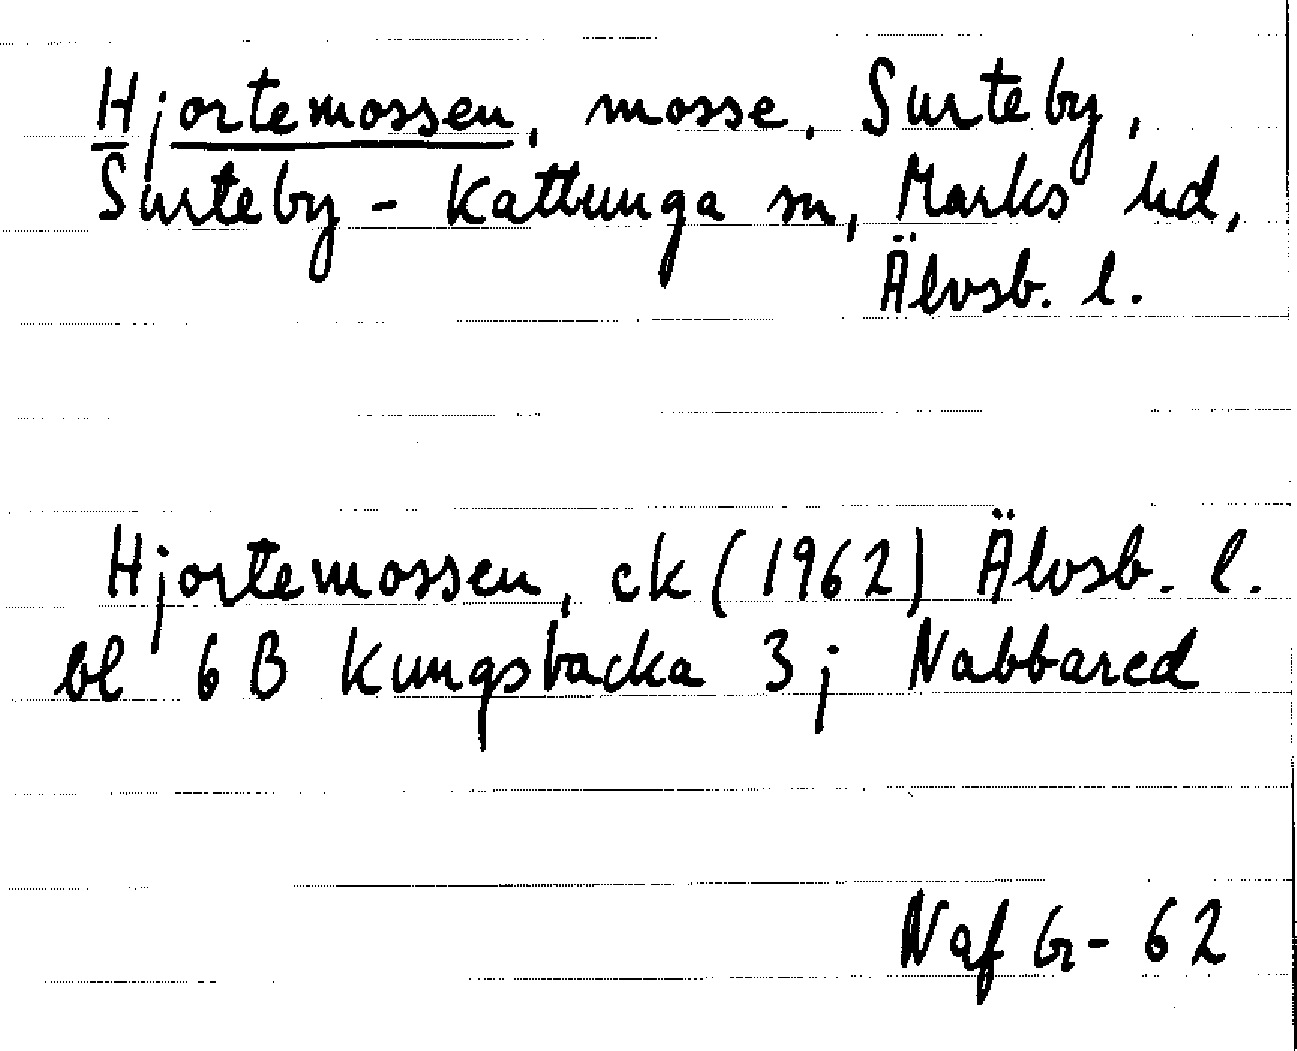 Hjortemossen, mosse. Surteby,
Surteby-Kattunga sn, Marks hd,
Älvsb. l.
Hjortemossen, ek (1962) Älvsb. l.
bl 6 B Kungsbacka 3 j Nabbared
Naf Gr-62